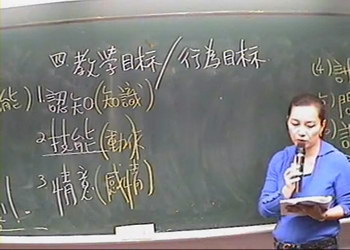 四教學目標/行為目標
能) 1.認知(知識)
2.技能(動作
3.情意(感情)
(4)